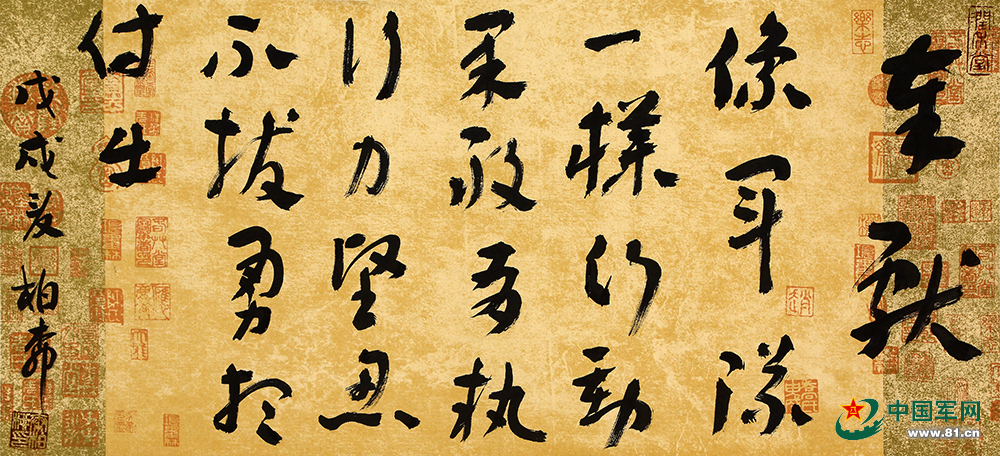 奉献
像军队
一样行动
果敢有执
行力坚忍
不拔勇于
付出
戊戌夏柏希
中国军网
www.81.cn